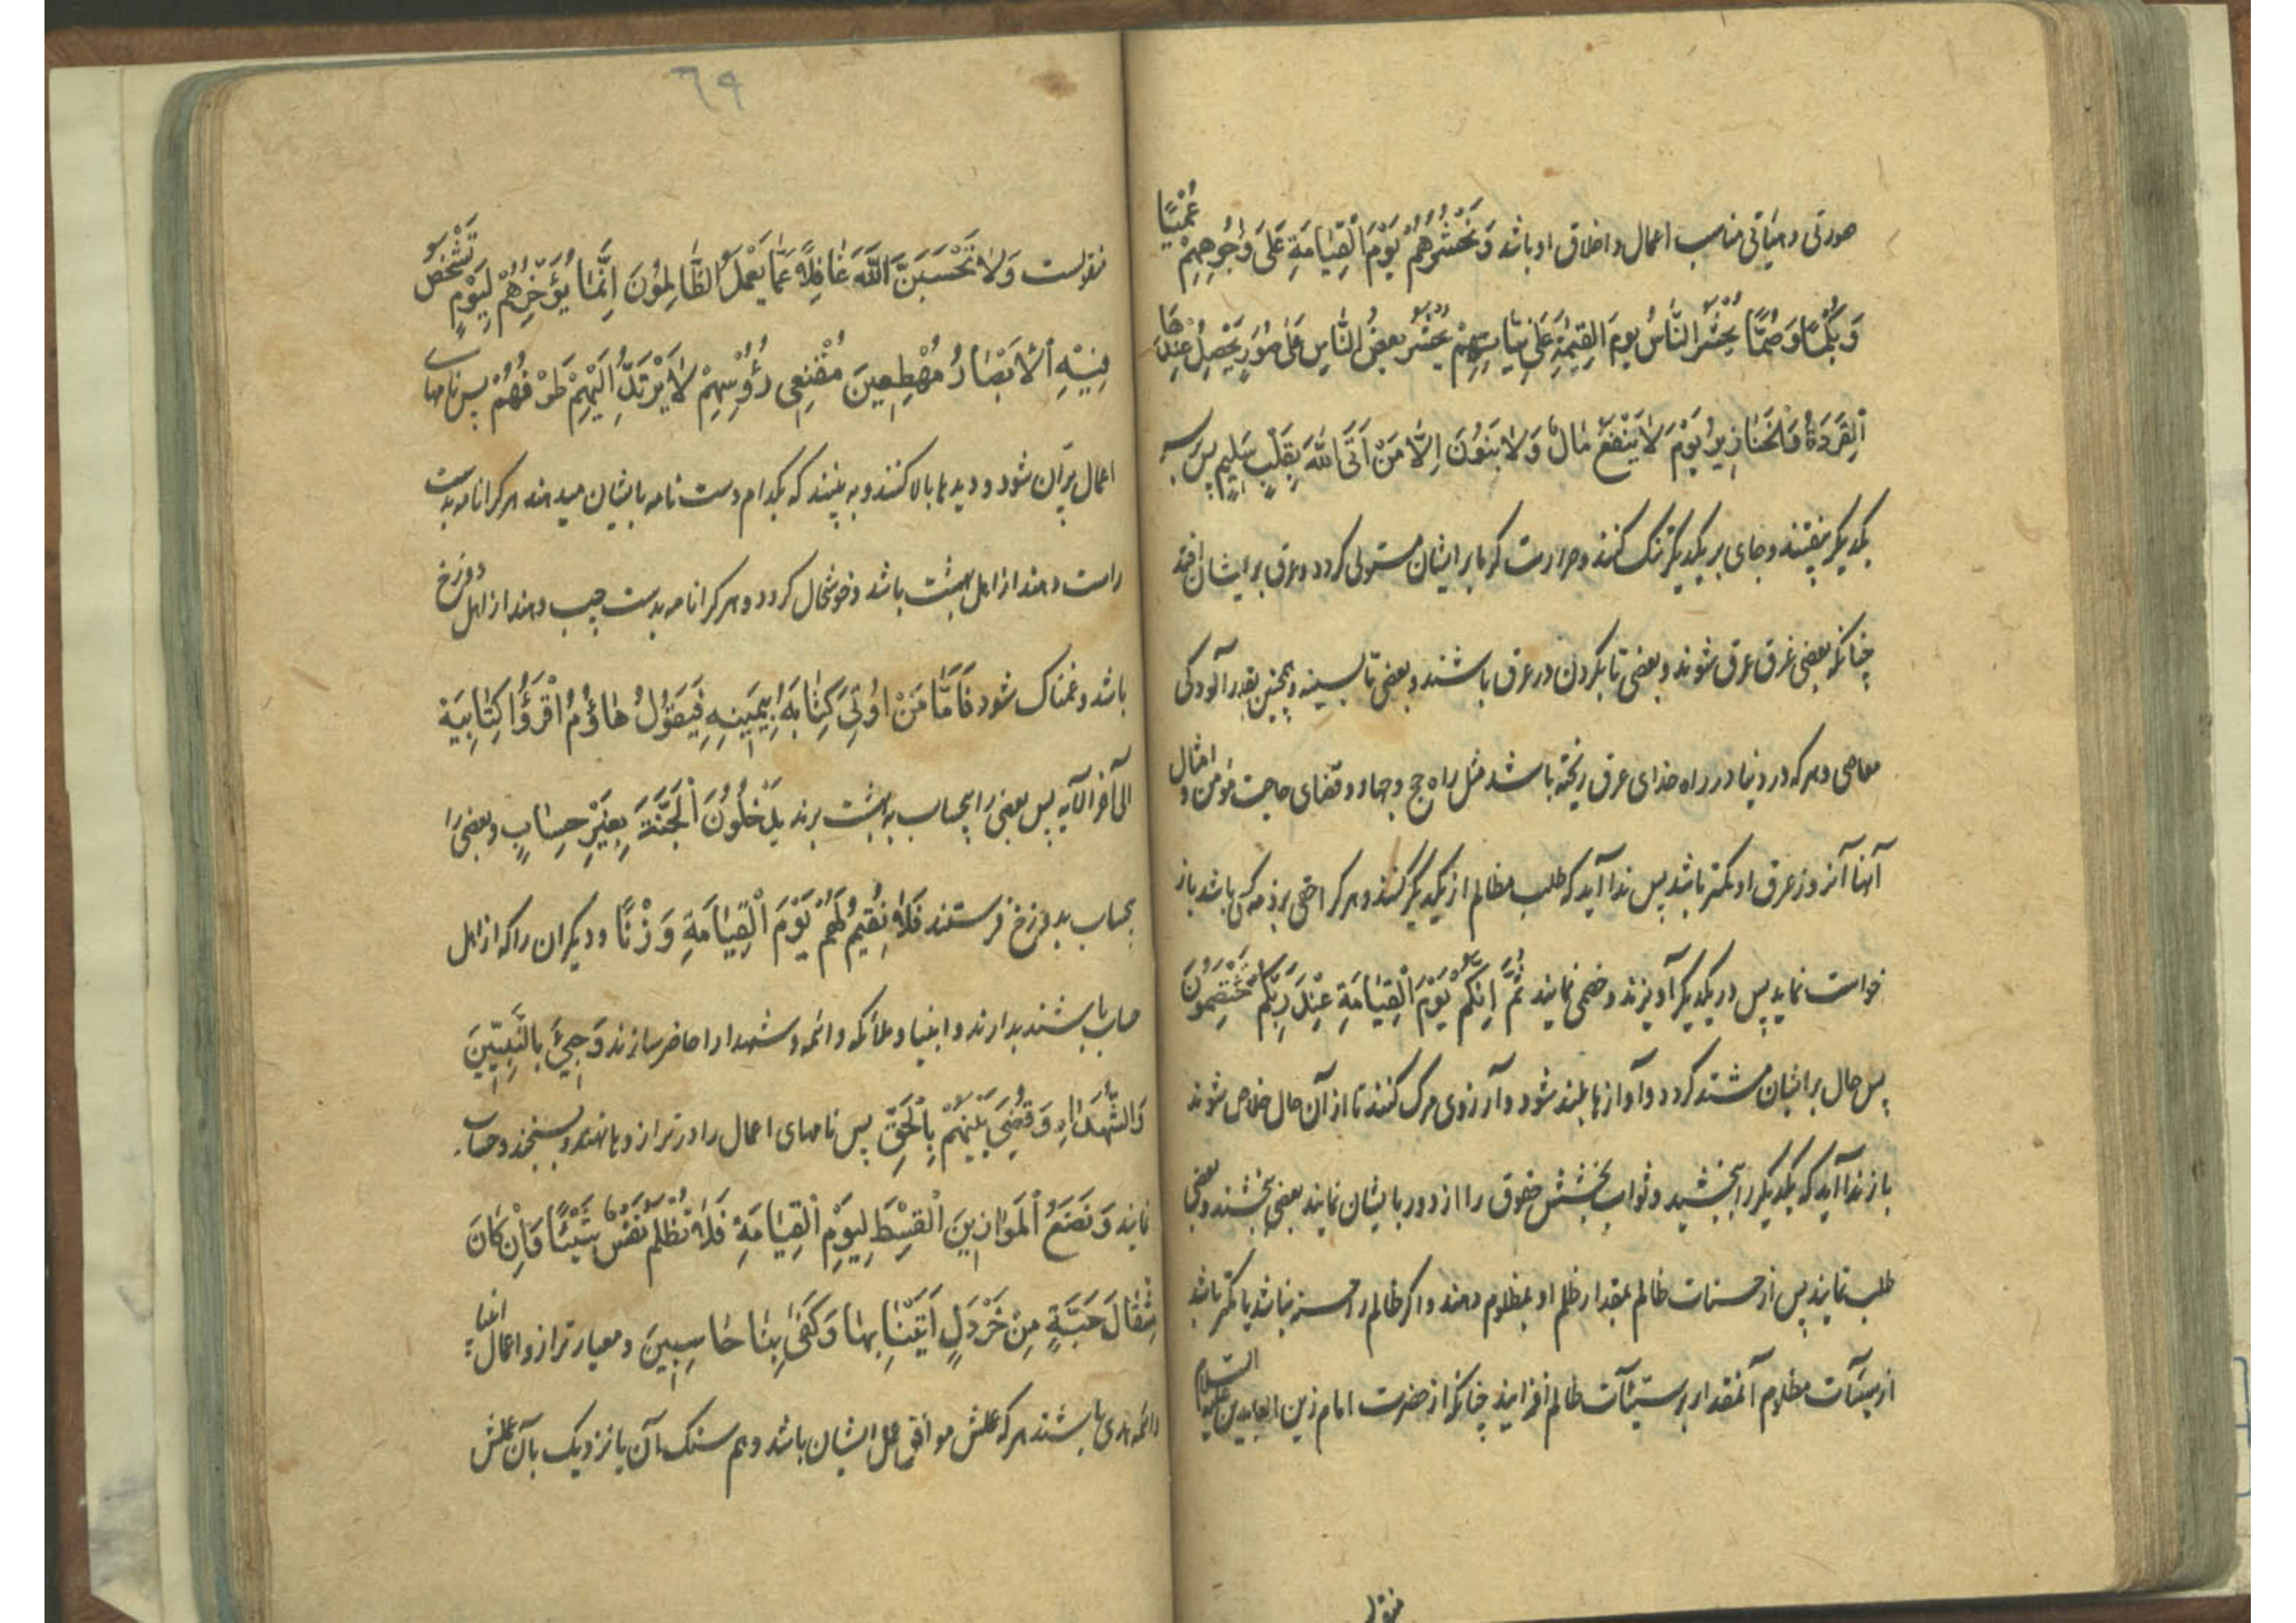 صورتی و هیأتی مناسب اعمال و اخلاق او باشد وَنَحْشُرُهُمْ یَوْمَ الْقِیَامَةِ عَلَی وُجُوهِهِمْ عُمْیًا
وَ بُکْمًا وَ صُمًّا یُحْشَرُ النَّاسُ یَوْمَ الْقِیٰمَةِ عَلَی نِیَّاتِهِمْ یُحْشَرُ بَعْضُ النَّاسِ عَلَی صُوَرٍ یَحْصُلُ عِنْدَهَا
اَلْقِرَدَةُ وَالْخَنَازِیرُ یَوْمَ لَا یَنْفَعُ مَالٌ وَلَا بَنُونَ اِلَّا مَنْ اَتَی اللّٰهَ بِقَلْبٍ سَلِیمٍ پس
یکدیگر بیفتند و جای بر یکدیگر تنک کنند و حرارت کرما بر ایشان مستولی کردد و عرق بر ایشان افتد
چنانکه بعضی غرق عرق شوند و بعضی تا بکردن در عرق باشند و بعضی تا بسینه و همچنین بقدر آلودکی
معاصی و هر که در دنیا در راه خدای عرق ریخته باشد مثل راه حج و جهاد و قضای حاجت مؤمن و امثال
آنها آنروز عرق او کمتر باشد پس ندا آید که طلب مظالم از یکدیگر کنند و هر کرا حقی بر ذمه کسی باشد باز
خواست نماید پس در یکدیگر آویزند و خصمی نمایند ثُمَّ اِنَّکُمْ یَوْمَ الْقِیَامَةِ عِنْدَ رَبِّکُمْ تَخْتَصِمُونَ
پس حال بر ایشان مشتد کردد و آوازها بلند شود و آرزوی مرک کنند تا از آن حال خلاص شوند
باز ندا آید که یکدیگر را ببخشید و ثواب بخشش حقوق را از دور بایشان نمایند بعضی بخشند و بعضی
طلب نمایند پس از حسنات ظالم بمقدار ظلم او بمظلوم دهند و اکر ظالم را حسنه نباشد یا کمتر باشد
از سیئآت مظلوم آنمقدار بر سیئآت ظالم افزایند چنانکه از حضرت امام زین العابدین علیه السلام
منقو
٦٩
منقولست وَلَا تَحْسَبَنَّ اللّٰهَ غَافِلًا عَمَّا یَعْمَلُ الظَّالِمُونَ اِنَّمَا یُؤَخِّرُهُمْ لِیَوْمٍ تَشْخَصُ
فِیهِ الْاَبْصَارُ مُهْطِعِینَ مُقْنِعِی رُؤُسِهِمْ لَا یَرْتَدُّ اِلَیْهِمْ طَرْفُهُمْ پس نامهای
اعمال پرّان شود و دیدها بالا کنند و به بینند که بکدام دست نامه بایشان میدهند هر کرا نامه بدست
راست دهند از اهل بهشت باشد و خوشحال کردد و هر کرا نامه بدست چپ دهند از اهل دوزخ
باشد و غمناک شود فَاَمَّا مَنْ اُوتِیَ کِتَابَهُ بِیَمِینِهِ فَیَقُولُ هَاؤُمُ اقْرَؤُا کِتَابِیَهْ
الی آخر الآیه پس بعضی را بیحساب به بهشت برند یَدْخُلُونَ الْجَنَّةَ بِغَیْرِ حِسَابٍ و بعضی را
بیحساب بدوزخ فرستند فَلَا نُقِیمُ لَهُمْ یَوْمَ الْقِیَامَةِ وَزْنًا و دیکران را که از اهل
حساب باشند بدارند و انبیا و ملائکه و ائمه و شهدا را حاضر سازند وَجِیءَ بِالنَّبِیِّینَ
وَالشُّهَدَاءِ وَقُضِیَ بَیْنَهُمْ بِالْحَقِّ پس نامهای اعمال را در ترازوها نهند و بسنجند و حساب
نمایند وَنَضَعُ الْمَوَازِینَ الْقِسْطَ لِیَوْمِ الْقِیَامَةِ فَلَا تُظْلَمُ نَفْسٌ شَیْئًا وَاِنْ کَانَ
مِثْقَالَ حَبَّةٍ مِنْ خَرْدَلٍ اَتَیْنَا بِهَا وَکَفَی بِنَا حَاسِبِینَ و معیار ترازو اعمال انبیا
و ائمه هدی باشند هر که عملش موافق عمل ایشان باشد و هم سنک آن یا نزدیک بآن عملش